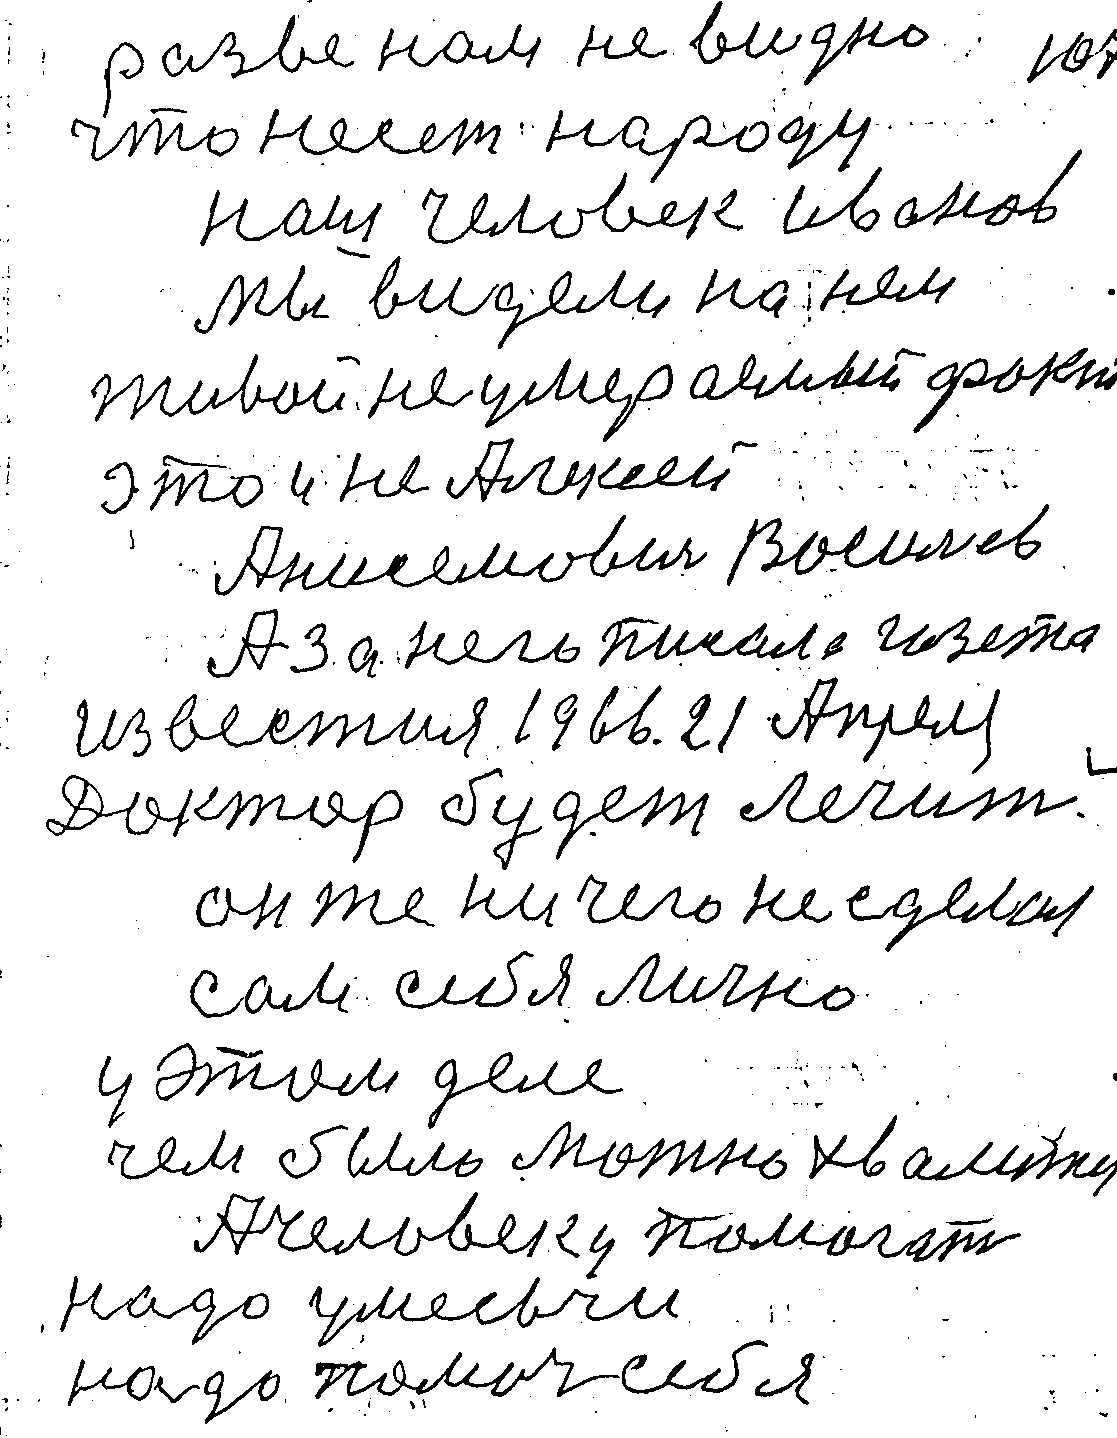 разве нам не видно 107
что несет народу
наш человек иванов
мы видели на нем
живой неумераемый факт
это и не Алексей
Анисемович Васильев
А за него писала газета
известия 1966. 21 Апреля
Доктор будет лечит
он же ничего не сделал
сам себя лично
у этом деле
чем было можно
А человеку помогат
надо умеючи
надо помоч себя